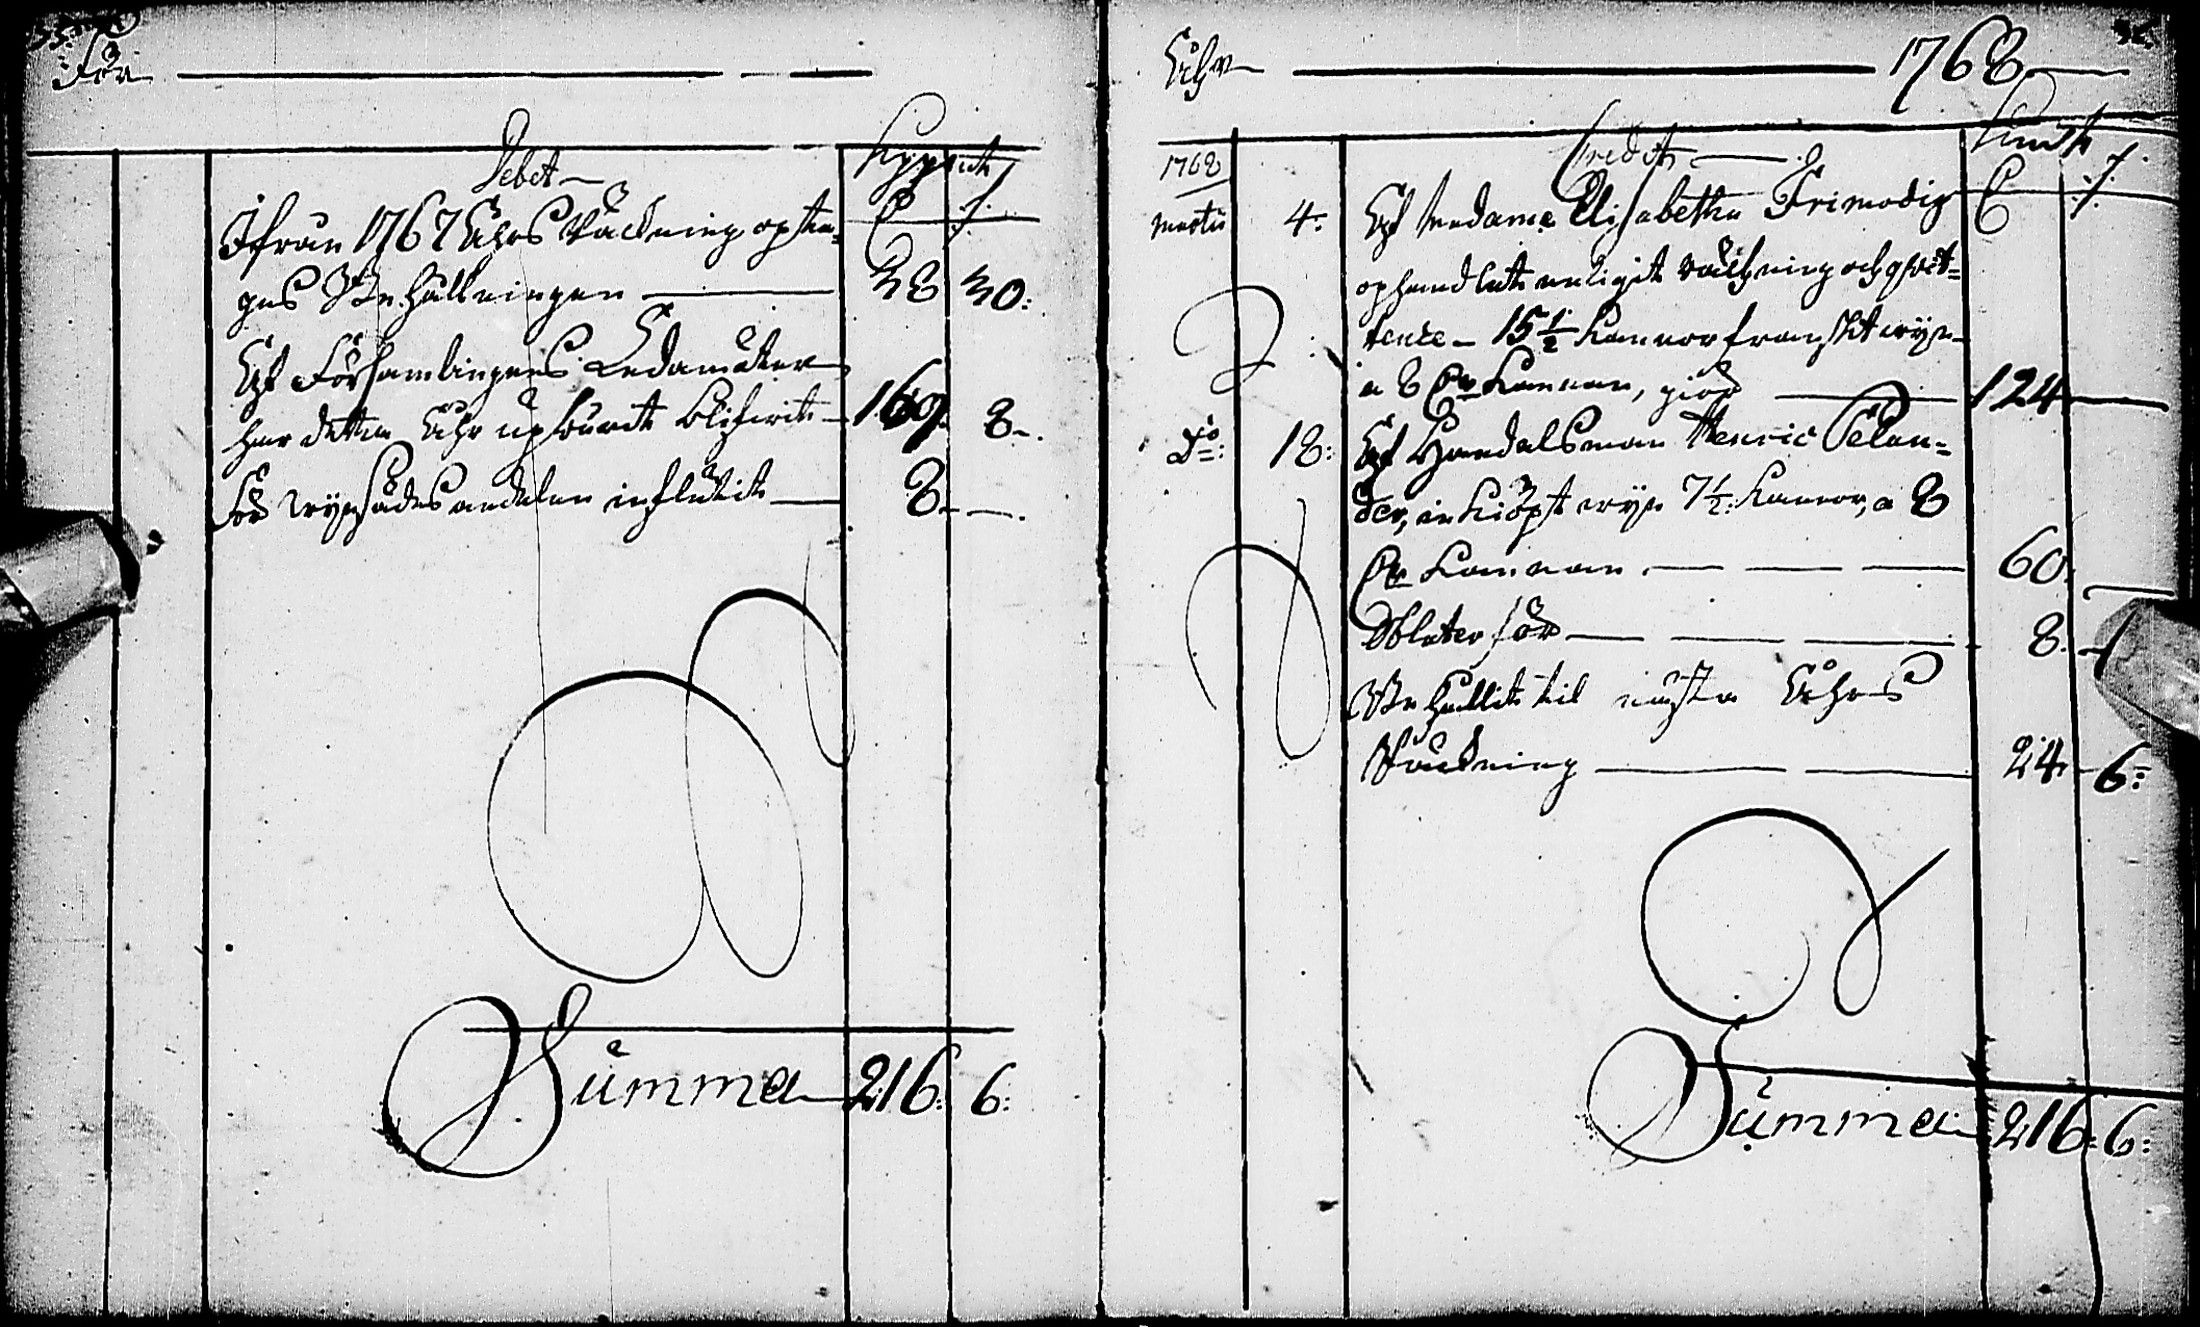 För
Debet
Kopp mt
Ifrån 1767 Åhrs Räckning opta=
ges Behållningen 38 30:
Af Församlingens Ledamöter
har detta Åhr upburit blifvit 169. 8.
för wijnsädes andelen influtit 8.
Summa 216: 6:
Åhr 1768
Credit
1768
Martii 4: Af Madame Elisabetha Frimodig
ophandlat enligit räckning och qvit=
tence 15 1/2 Kannor franskt wijn
a 8 Kannan, giör 124
Do: 18: Af Handelsman Henric Selan=
der, inkiöpt wijn 7 1/2: Kannor, a 8
Kannan 60:
Oblater för 8.
Behållit til nästa Åhrs
Räckning 24. 6:
Summa 216: 6: